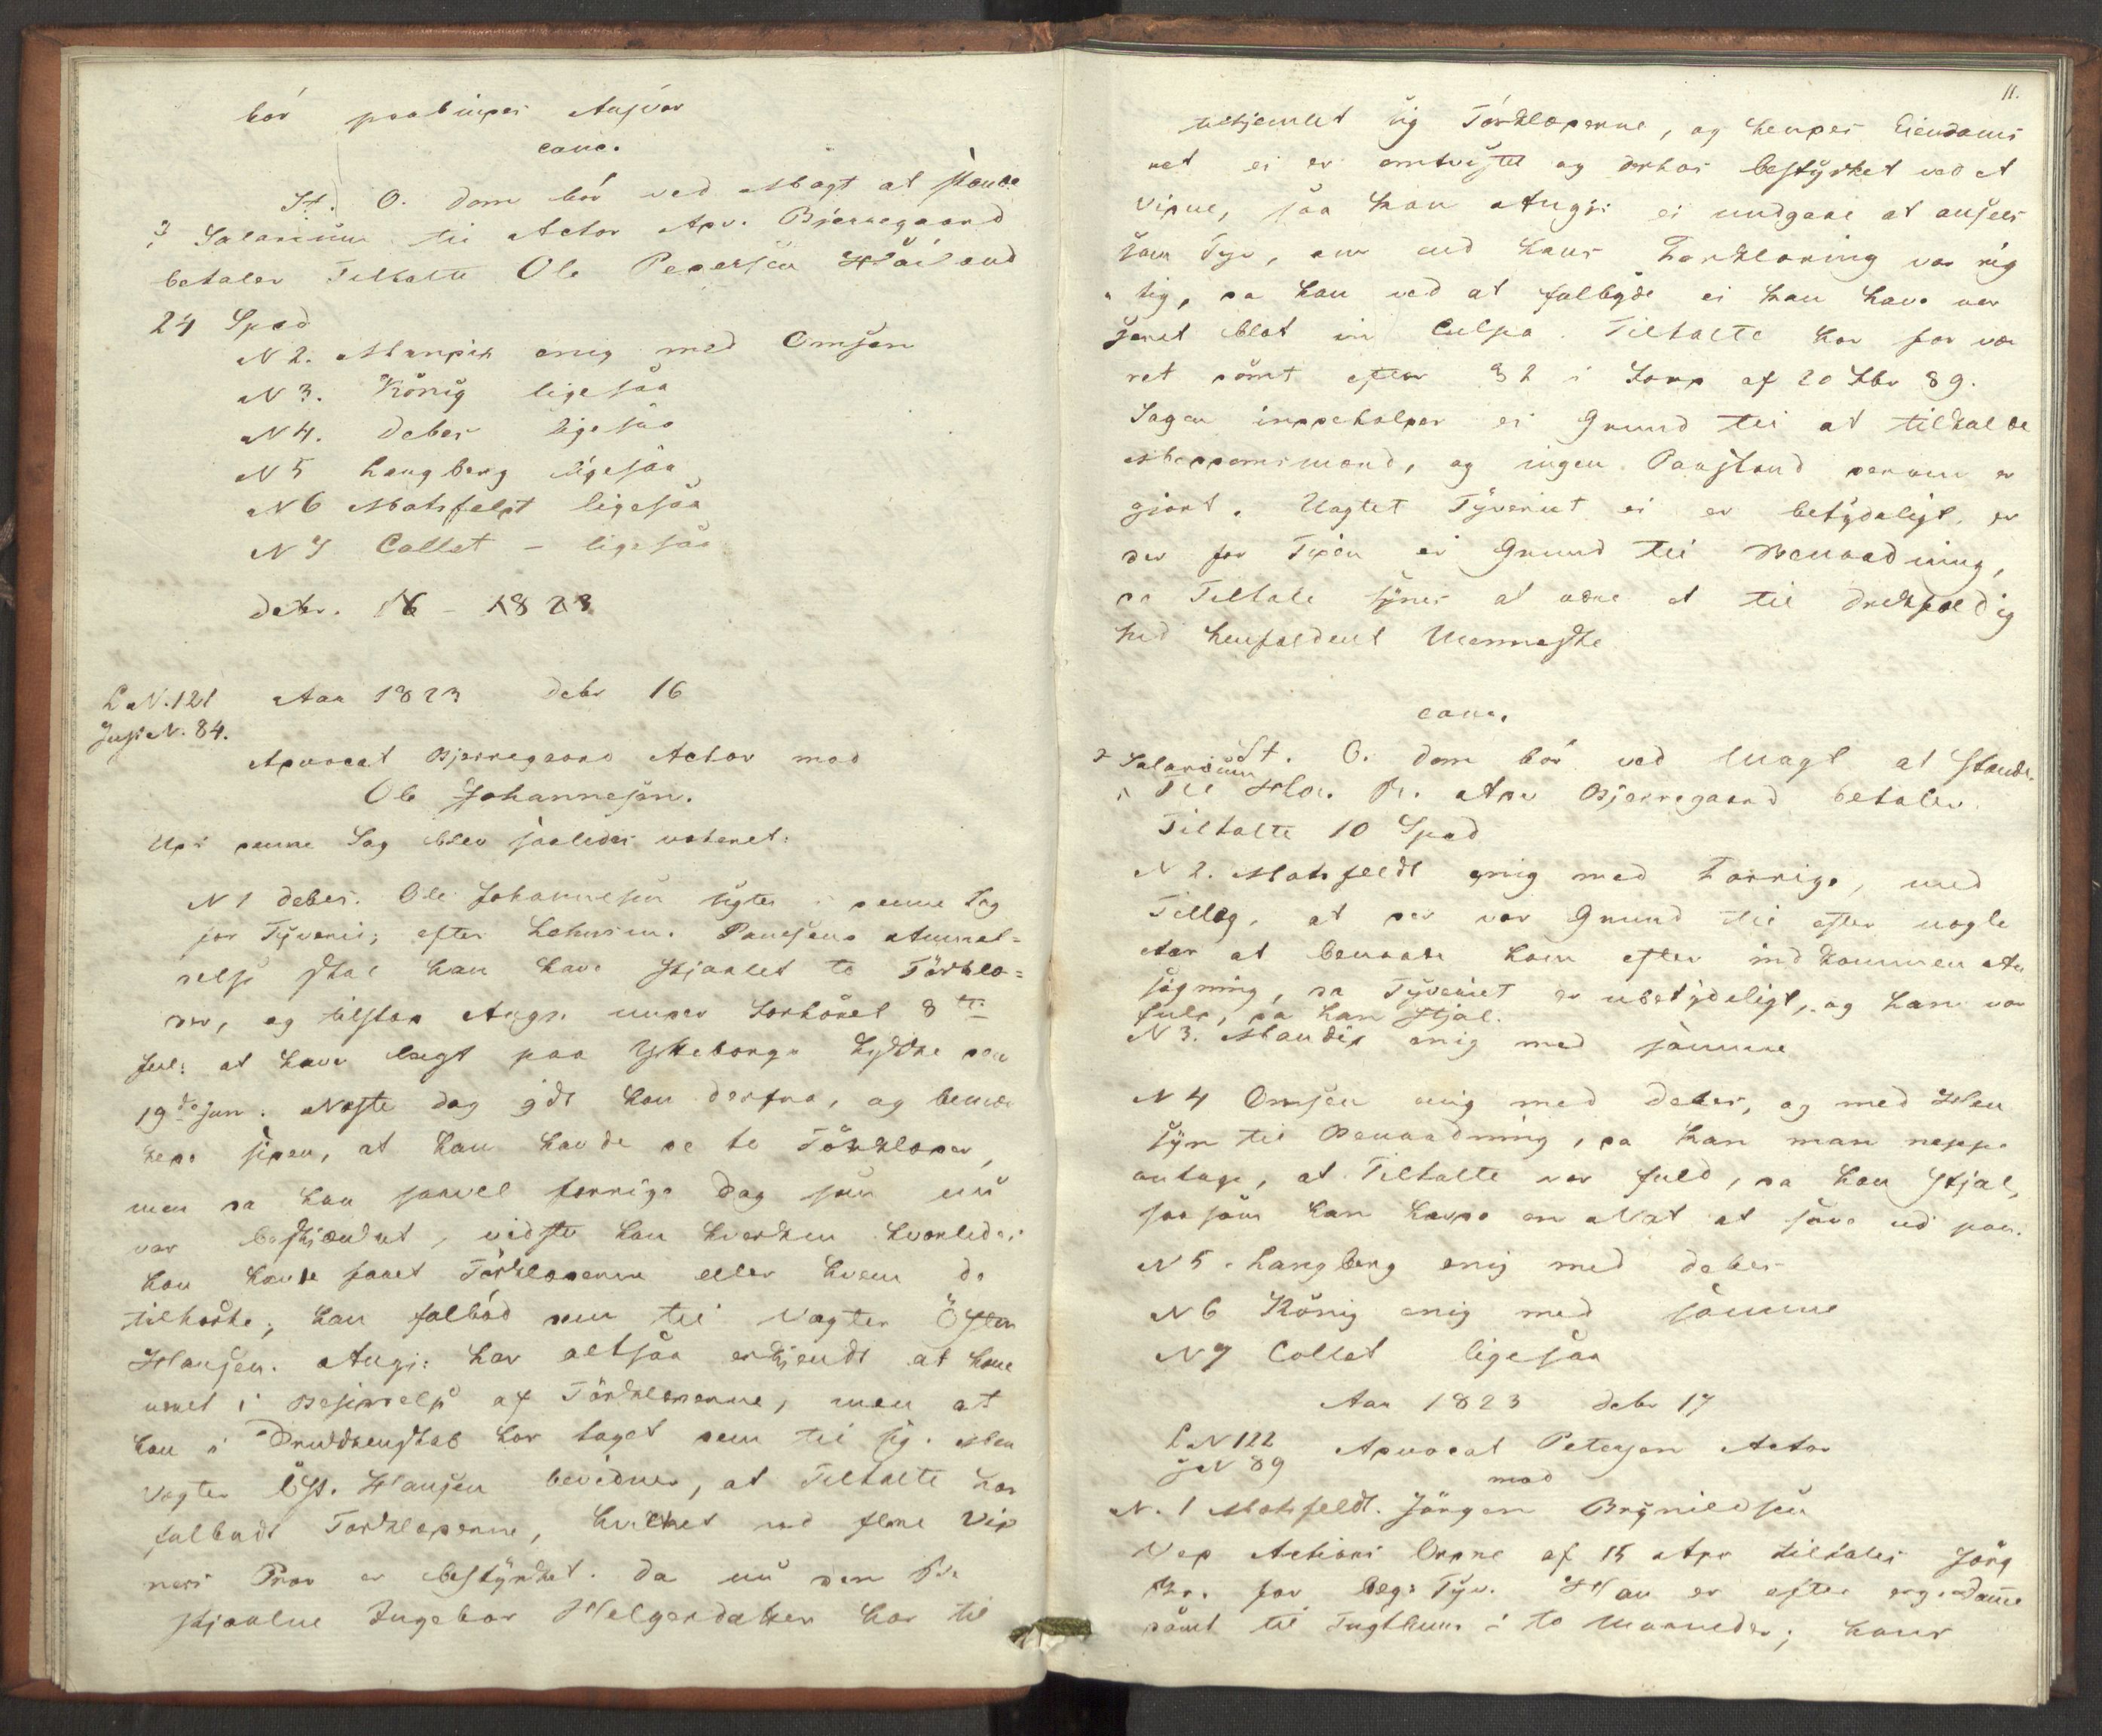 bör paabindes Ansvar
conc.
St. O. Dom bör ved Magt at stande
I Salarium til Actor Adv. Bjerregaard
betaler Tiltalte Ole Pedersen Höiland
24 Spd
N 2. Mandix enig med Omsen
N 3. König ligesaa
N 4. Debes ligesaa
N 5 Langberg ligesaa
N 6 Motzfeldt ligesaa
N 7 Collet - ligesaa
Debr. 16 - 1823
L N. 121 Aar 1823 Debr 16
Just N. 84.
Advocat Bjerregaard Actor mod
Ole Johannesen.
Udi denne Sag blev saaledes voteret:
N 1 Debes. Ole Johannesen sigtes i denne Sag
for Tyverie; efter Lehnsm. Anmel=
delse skal han have stjaalet to Törklæ=
der, og tilstod Angj. under Forhöret 8de
Jul: at have lagt paa Hytte den
19de Jun. Næste Dag gik han derfra, og bemær
kede siden, at han havde de to Törklæder,
men da han saavel forrige Dag som nu
var beskjænket, vidste han hverken hvorledes
han havde faaet Törklæderne eller hvem de
tilhörte; han falböd dem til Vægter Östen
Hansen. Angj: har altsaa erkjendt at have
været i Besiddelse af Törklæderne, men at
han i Druckenskab har taget dem til sig. Men
Vægter Öst. Hansen bevidner, at Tiltalte har
falbudt Törklæderne, hvilket ved flere Vid
ners Prov er bestyrket. Da nu den Be
stjaalne Ingebor Helgerdatter har til
11.
sig Törklæderne, og hendes Eiendoms
ret ei er omtvistet og derhos bestyrket ved et
Vidne, saa kan Angj: ei undgaae at ansees
som Tyv, om end hans Forklaring var rig
tig, da han ved at falbyde ei kan have væ
seret blot in Culpa. Tiltalte har för væ
ret dömt efter § 2 i Ford af 20 Fbr 89.
Sagen inddeholder ei Grund til at tilkalde
Meddomsmænd, og ingen Paastand derom er
gjort. Uagtet Tyveriet ei er betydeligt, er
der for Tiden ei Grund til Benaadning,
da Tiltale synes at være et til Drukfældig
hed henfaldent Menneske
conc.
St. O. Dom bör ved Magt at stande.
I Salarium
til Hör. Pr. Adv Bjerregaard betaler
Tiltalte 10 Spd
N 2. Motzfeldt enig med Forrige, med
Tillæg, at der var Grund til efter nogle
Aar at benaade ham efter indkommen An
sögning, da Tyveriet er ubetydeligt, og han var
fuld, da han stjal.
N 3. Mandix enig med samme
N 4 Omsen enig med Debes, og med Hen
syn til Benaadning, da kan man neppe
antage, at Tiltalte var fuld, da han stjal,
saasom han havde en Nat at sove ud paa.
N 5. Langberg enig med Debes
N 6 König enig med samme
N 7 Collet ligesaa
Aar 1823 Debr 17
L N 122 Advocat Petersen Actor
J N 89
mod
N. 1 Motzfeldt. Jörgen Brynildsen
Ved Actions Ordre af 15 Apr tiltales Jörg
Br. for beg: Tyv. Han er efter erg. Domme
dömt til Tugthuus i to Maaneder; hans